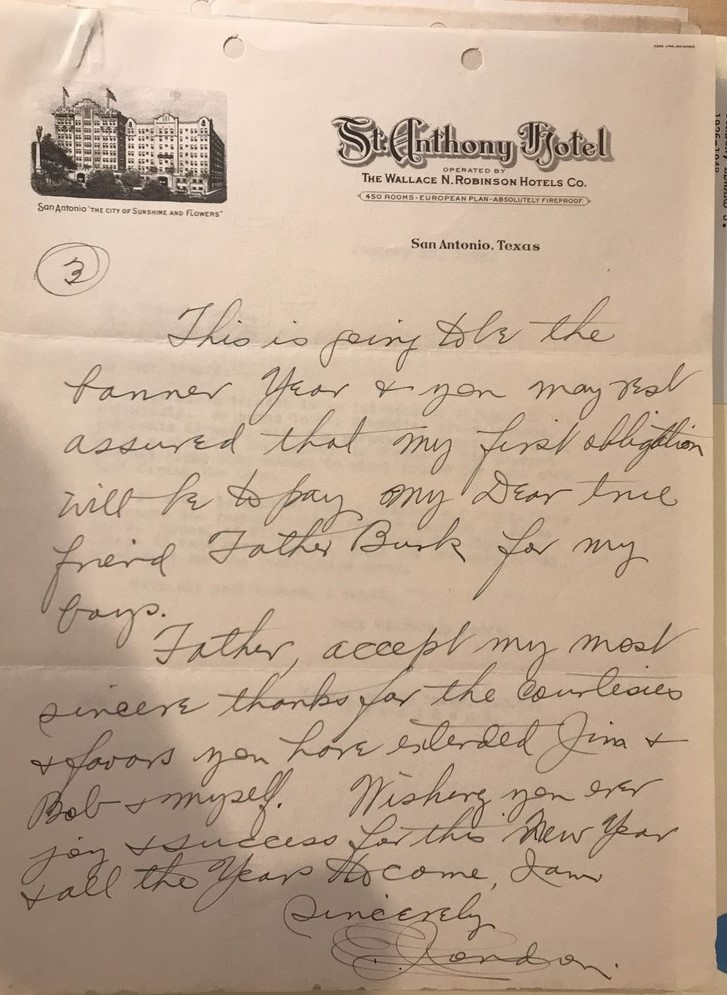 St. Anthony Hotel
OPERATED BY
THE WALLACE N. ROBINSON HOTELS CO.
450 ROOMS - EUROPEAN PLAN - ABSOLUTELY FIREPROOF
San Antonio "THE CITY OF SUNSHINE AND FLOWERS"
San Antonio, Texas
3
This is going to be the
banner Year & you may rest
assured that my first obligation
will be to pay my Dear true
friend Father Burk for my
boys.
Father, accept my most
sincere thanks for the Courtesies
& favors you have extended Jim &
Bob & myself. Wishing you ever
joy & success for this New Year
& all the Years to come, I am
Sincerely